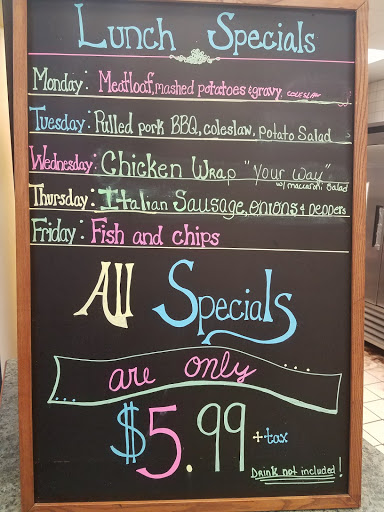 Lunch Specials
Monday: Meatloaf, mashed potatoes & gravy, coleslaw
Tuesday: Pulled pork BBQ, coleslaw, potato Salad
Wednesday: Chicken Wrap "Your Way"
w/ macaroni Salad
Thursday: Italian Sausage, onions & peppers
Friday: Fish and chips
All Specials
are only
$5.99 + tax
Drink not included!